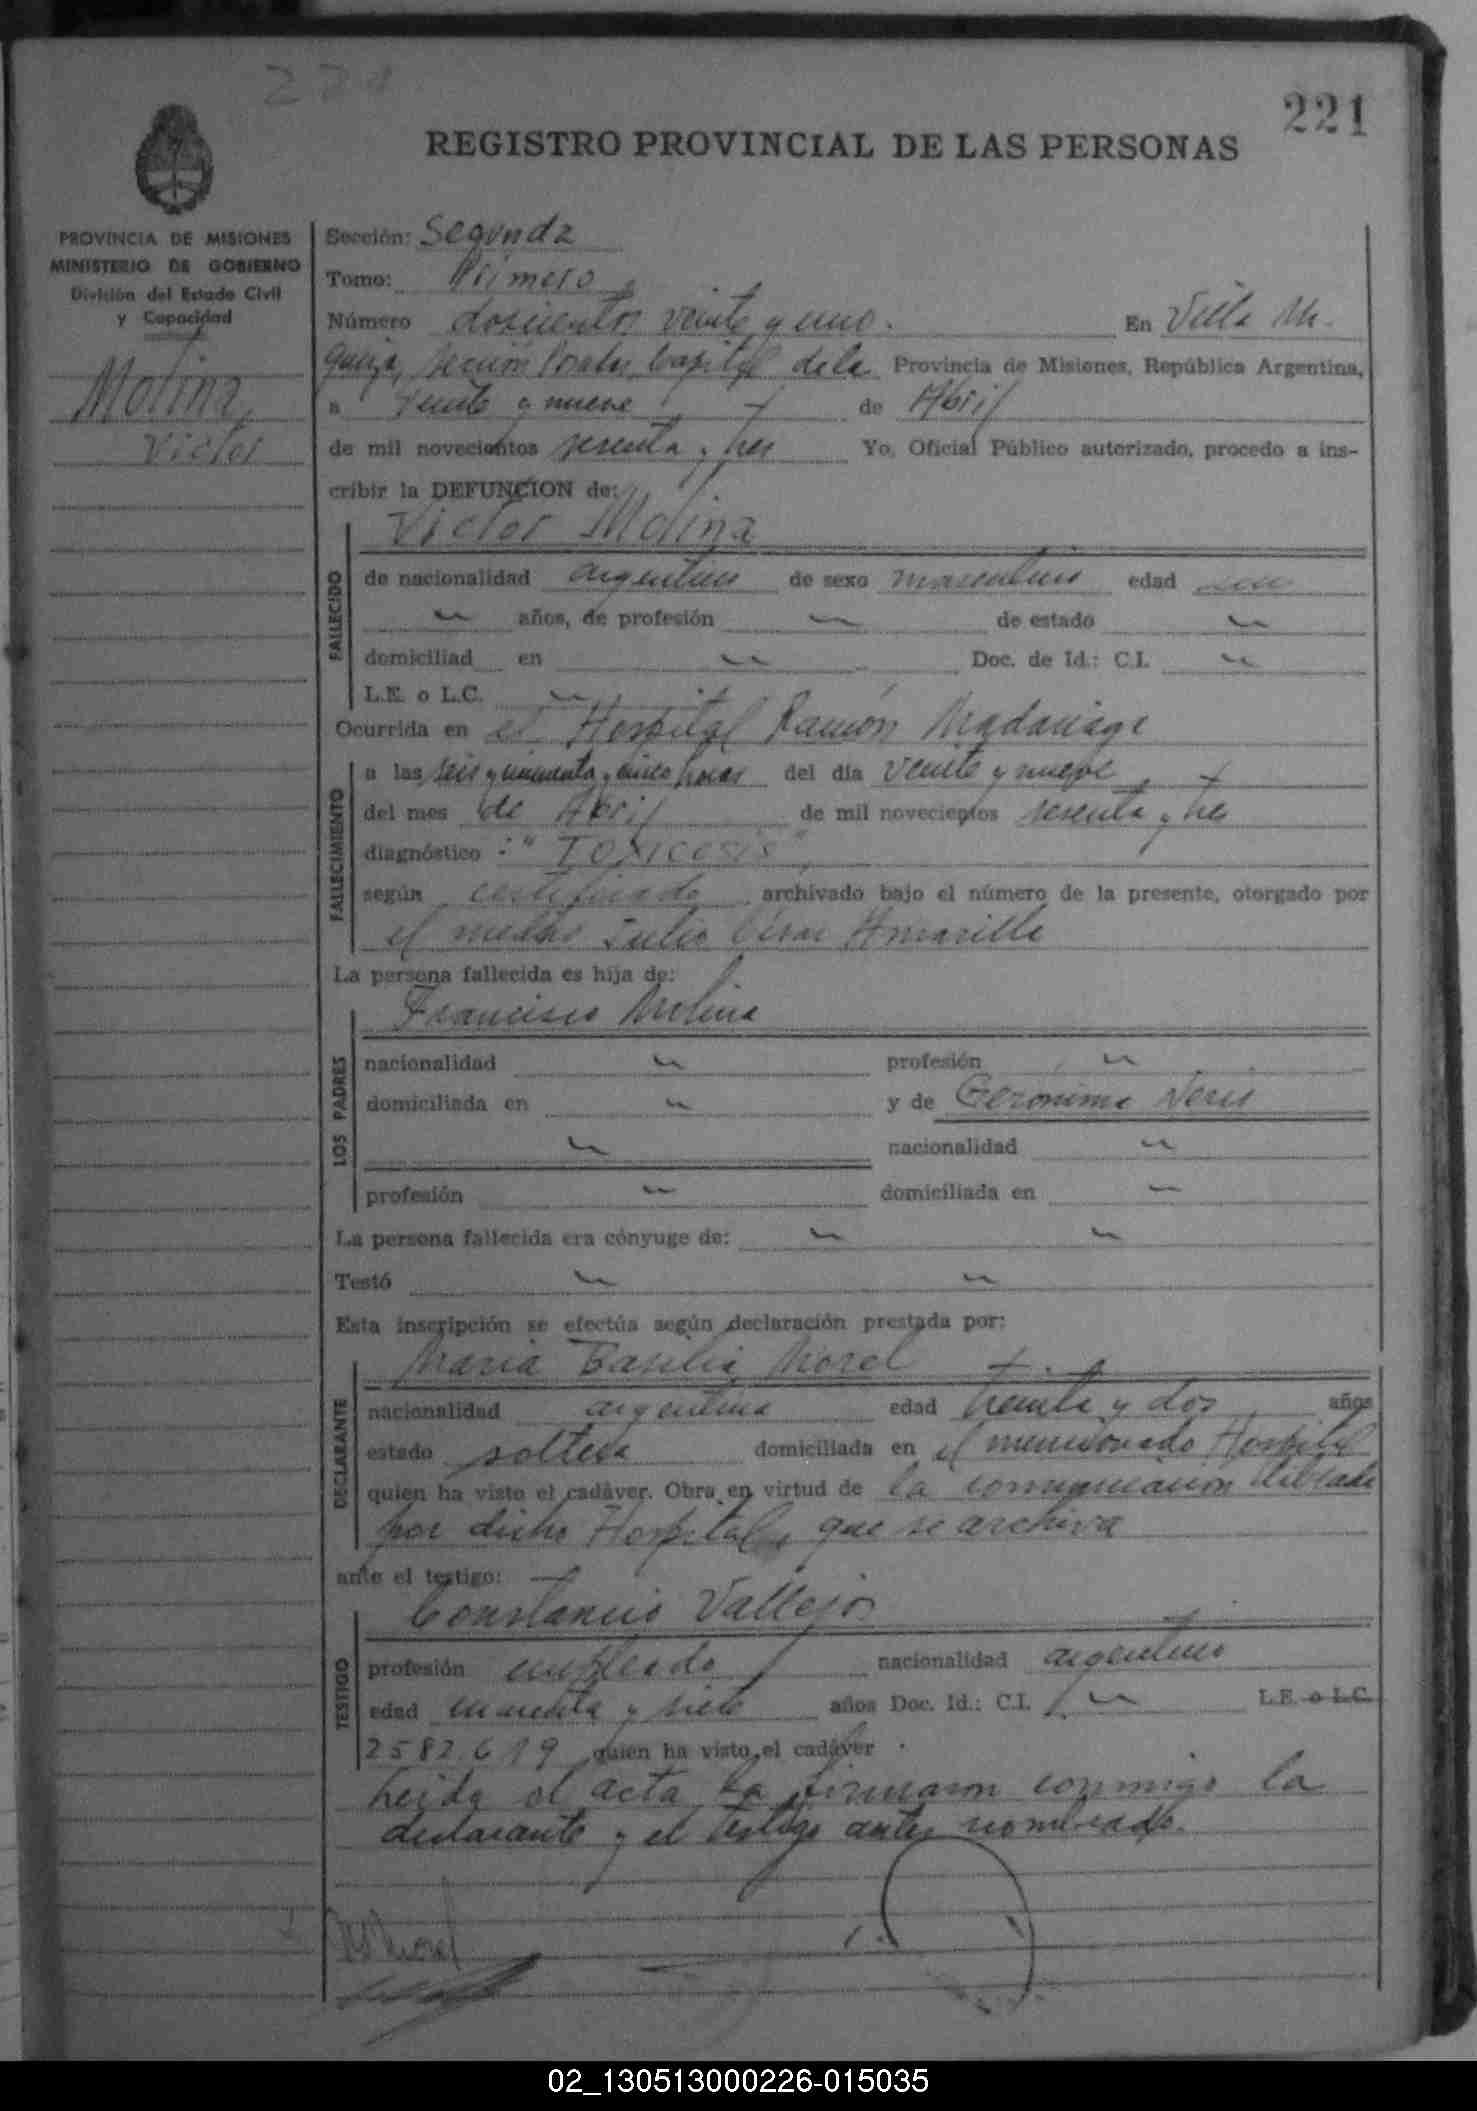 221
REGISTRO PROVINCIAL DE LAS PERSONAS
PROVINCIA DE MISIONES
MINISTERIO DE GOBIERNO
División del Estado Civil
y Capacidad
Molina,
Victor
Sección: Segunda
Tomo: Primero
Número doscientos veinte y uno. En Villa M.
Capital de la Provincia de Misiones, República Argentina,
a veinte y nueve de Abril
de mil novecientos sesenta y tres Yo, Oficial Público autorizado, procedo a ins-
cribir la DEFUNCION de:
Victor Molina
FALLECIDO
de nacionalidad argentino de sexo masculino edad
años, de profesión de estado
domiciliad en Doc. de Id.: C.I.
L.E. o L.C.
Ocurrida en el Hospital Ramón Madariaga
FALLECIMIENTO
a las seis y cincuenta y cinco horas del día veinte y nueve
del mes de Abril de mil novecientos sesenta y tres
diagnóstico : "TOXICOSIS"
según certificado archivado bajo el número de la presente, otorgado por
el médico Julio César Amarilla
La persona fallecida es hija de:
Francisco Molina
LOS PADRES
nacionalidad profesión
domiciliada en y de Gerónima Neris
nacionalidad
profesión domiciliada en
La persona fallecida era cónyuge de:
Testó
Esta inscripción se efectúa según declaración prestada por:
Maria Basilia Morel
DECLARANTE
nacionalidad argentina edad treinta y dos años
estado soltera domiciliada en el mencionado Hospital
quien ha visto el cadáver. Obra en virtud de la comunicación librada
por dicho Hospital, que se archiva
ante el testigo:
Constancio Vallejos
TESTIGO
profesión empleado nacionalidad argentino
edad cuarenta y siete años Doc. Id.: C.I. L.E. o L.C.
2582.619 quien ha visto el cadáver.
Leida el acta la firmaron conmigo la
declarante y el testigo antes nombrado.
MMorel
02_130513000226-015035